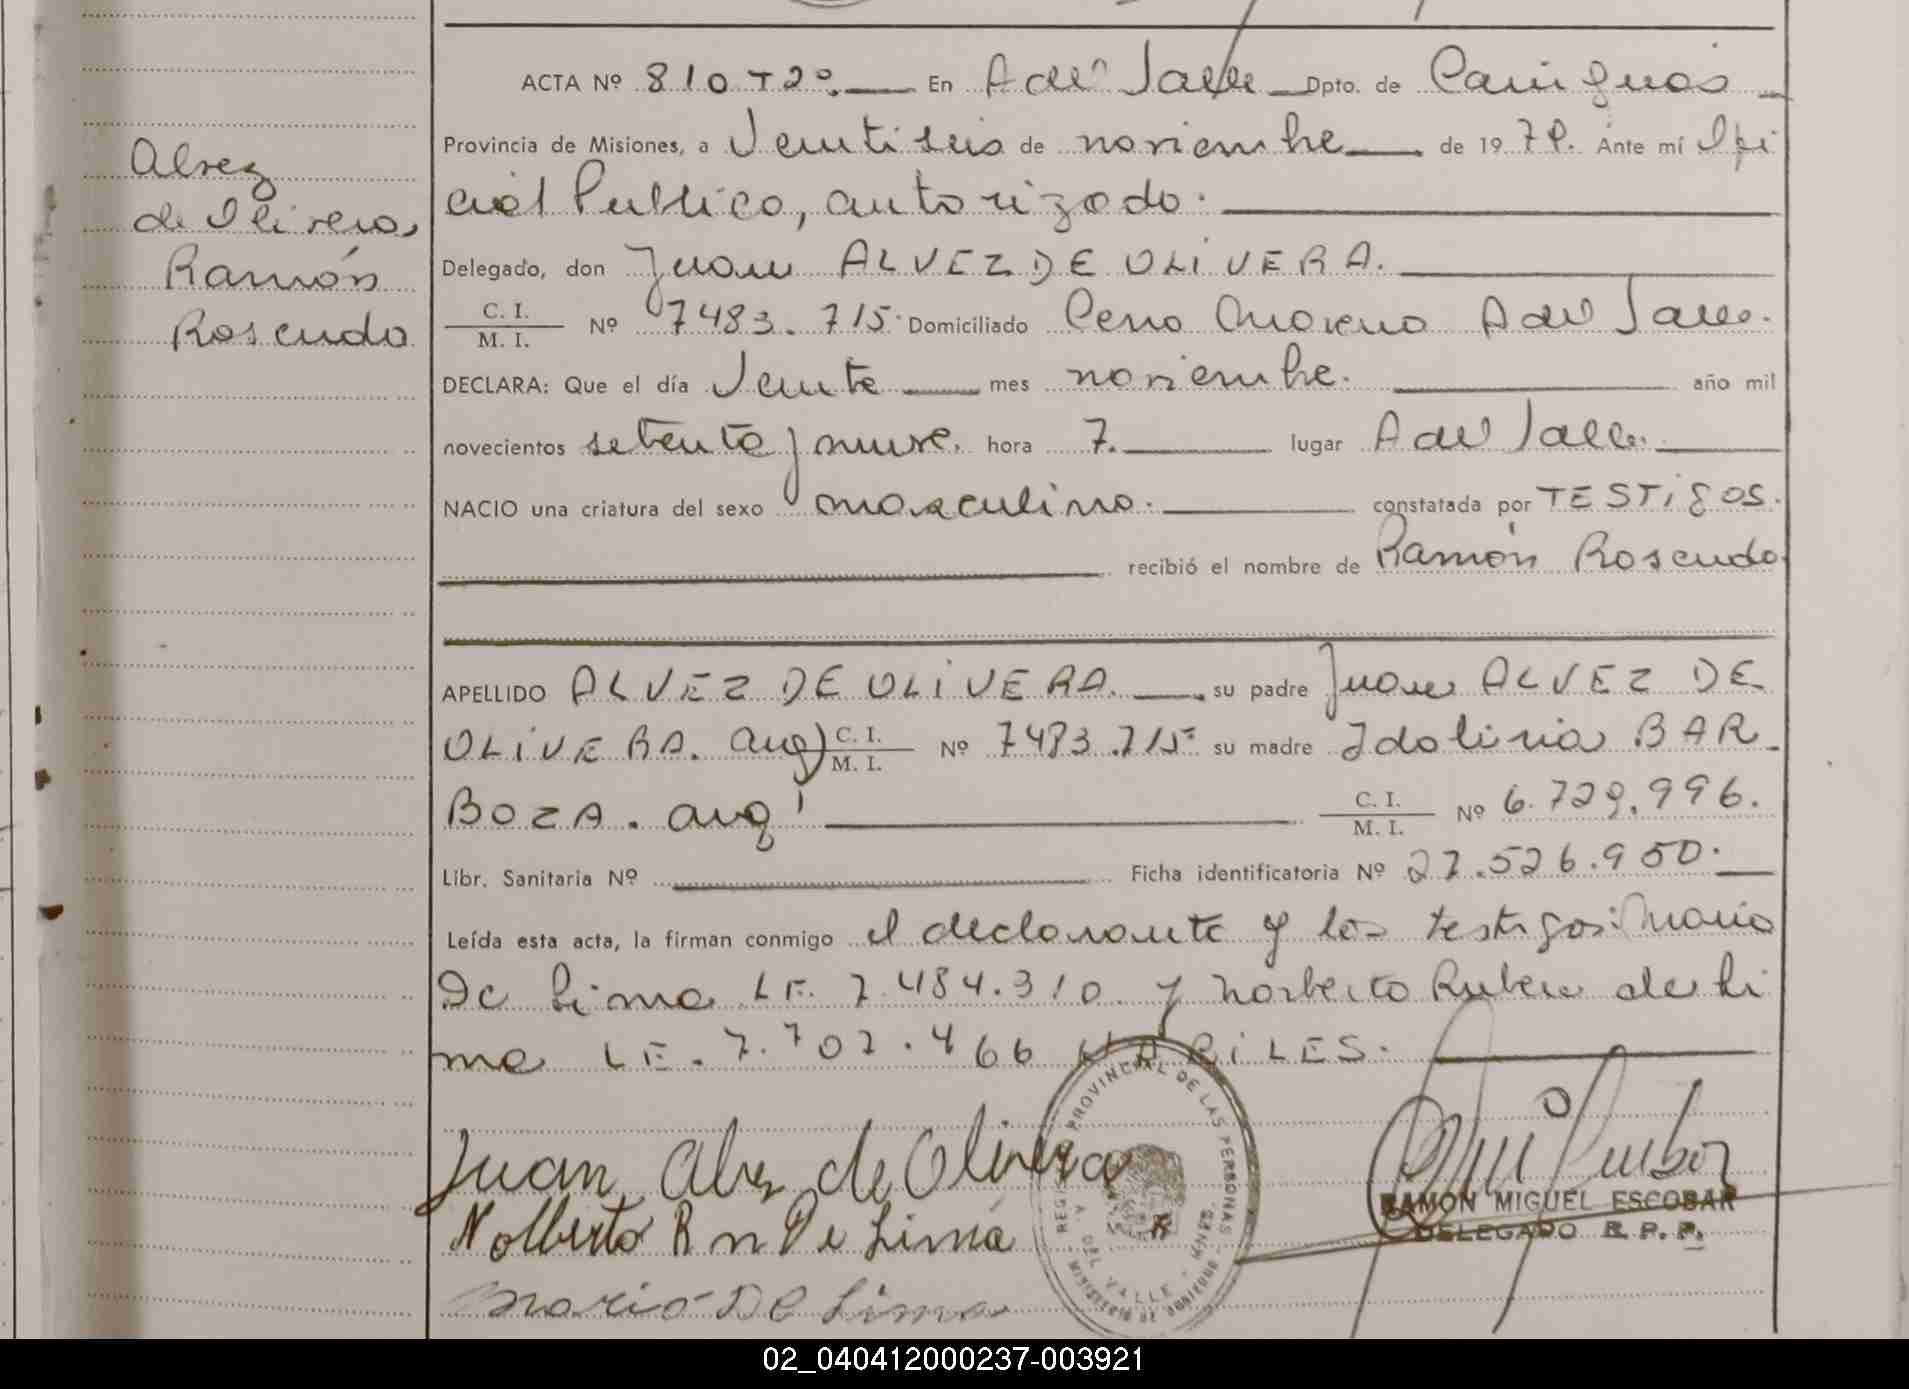 ACTA Nº 810 T 2º. En A del Valle Dpto. de Cainguás
Provincia de Misiones, a Veintiseis de noviembre de 1979. Ante mí Ofi
cial Publico, autorizado.
Alvez
de Olivera,
Ramón
Rosendo
Delegado, don Juan ALVEZ DE OLIVERA.
C. I.
M. I.
Nº 7483.715. Domiciliado Cerro Moreno A del Valle.
DECLARA: Que el día Veinte mes noviembre. año mil
novecientos setenta y nueve. hora 7. lugar A del Valle.
NACIO una criatura del sexo masculino. constatada por TESTigos.
recibió el nombre de Ramón Rosendo
APELLIDO ALVEZ DE OLIVERA. su padre Juan ALVEZ DE
OLIVERA. arg) C. I.
M. I.
Nº 7483.715 su madre Idolina BAR
BOZA. arg C. I.
M. I.
Nº 6.729.996.
Libr. Sanitaria Nº Ficha identificatoria Nº 27.526.950.
Leída esta acta, la firman conmigo el declarante y los testigos: Mario
De Lima LE. 7.484.310. y Norberto Ruben de Li
ma LE. 7.707.466 HABILES.
Juan Alvez de Olivera
Nolberto R n De Lima
Mario De Lima
PROVINCIAL DE LAS PERSONAS
A. DEL VALLE - MNES.
MINISTERIO DE GOBIERNO
RAMON MIGUEL ESCOBAR
DELEGADO R. P. P.
02_040412000237-003921